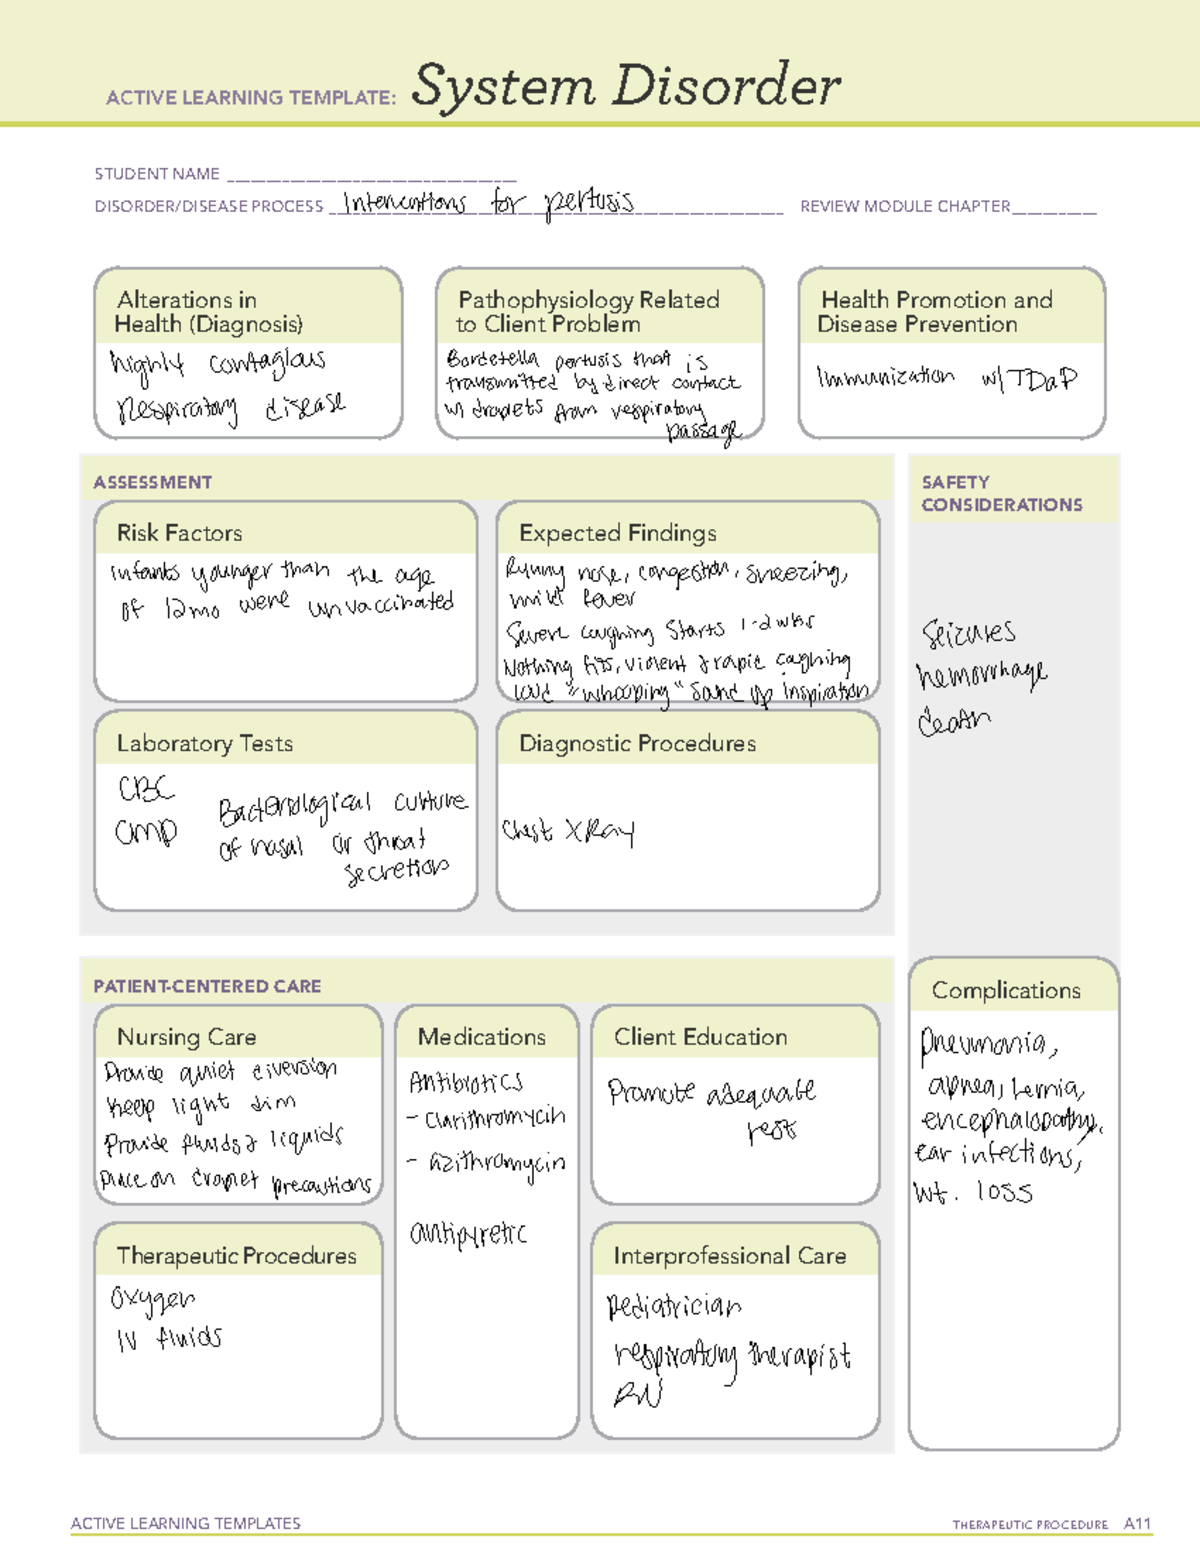 ACTIVE LEARNING TEMPLATE: System Disorder
STUDENT NAME
DISORDER/DISEASE PROCESS Interventions for pertusis REVIEW MODULE CHAPTER
Alterations in
Health (Diagnosis)
highly contagious
Respiratory disease
Pathophysiology Related
to Client Problem
Bordetella pertusis that is
transmitted by direct contact
w/ droplets from respiratory
passage
Health Promotion and
Disease Prevention
Immunization w/ TDaP
ASSESSMENT
Risk Factors
infants younger than the age
of 12mo were unvaccinated
Expected Findings
Runny nose, congestion, sneezing,
mild fever
Severe coughing starts 1-2 wks
Nothing fits, violent & rapid coughing
loud "whooping" sound up inspiration
Laboratory Tests
CBC
CMP
Bacteriological culture
of nasal or throat
secretion
Diagnostic Procedures
Chest XRay
SAFETY
CONSIDERATIONS
Seizures
hemorrhage
death
PATIENT-CENTERED CARE
Nursing Care
Provide quiet diversion
Keep light dim
Provide fluids & liquids
Place on droplet precautions
Medications
Antibiotics
- Clarithromycin
- azithromycin
antipyretic
Client Education
Promote adequate
rest
Therapeutic Procedures
Oxygen
IV fluids
Interprofessional Care
Pediatrician
respiratory therapist
RN
Complications
pneumonia,
apnea, hernia,
encephalopathy,
ear infections,
wt. loss
ACTIVE LEARNING TEMPLATES
THERAPEUTIC PROCEDURE A11